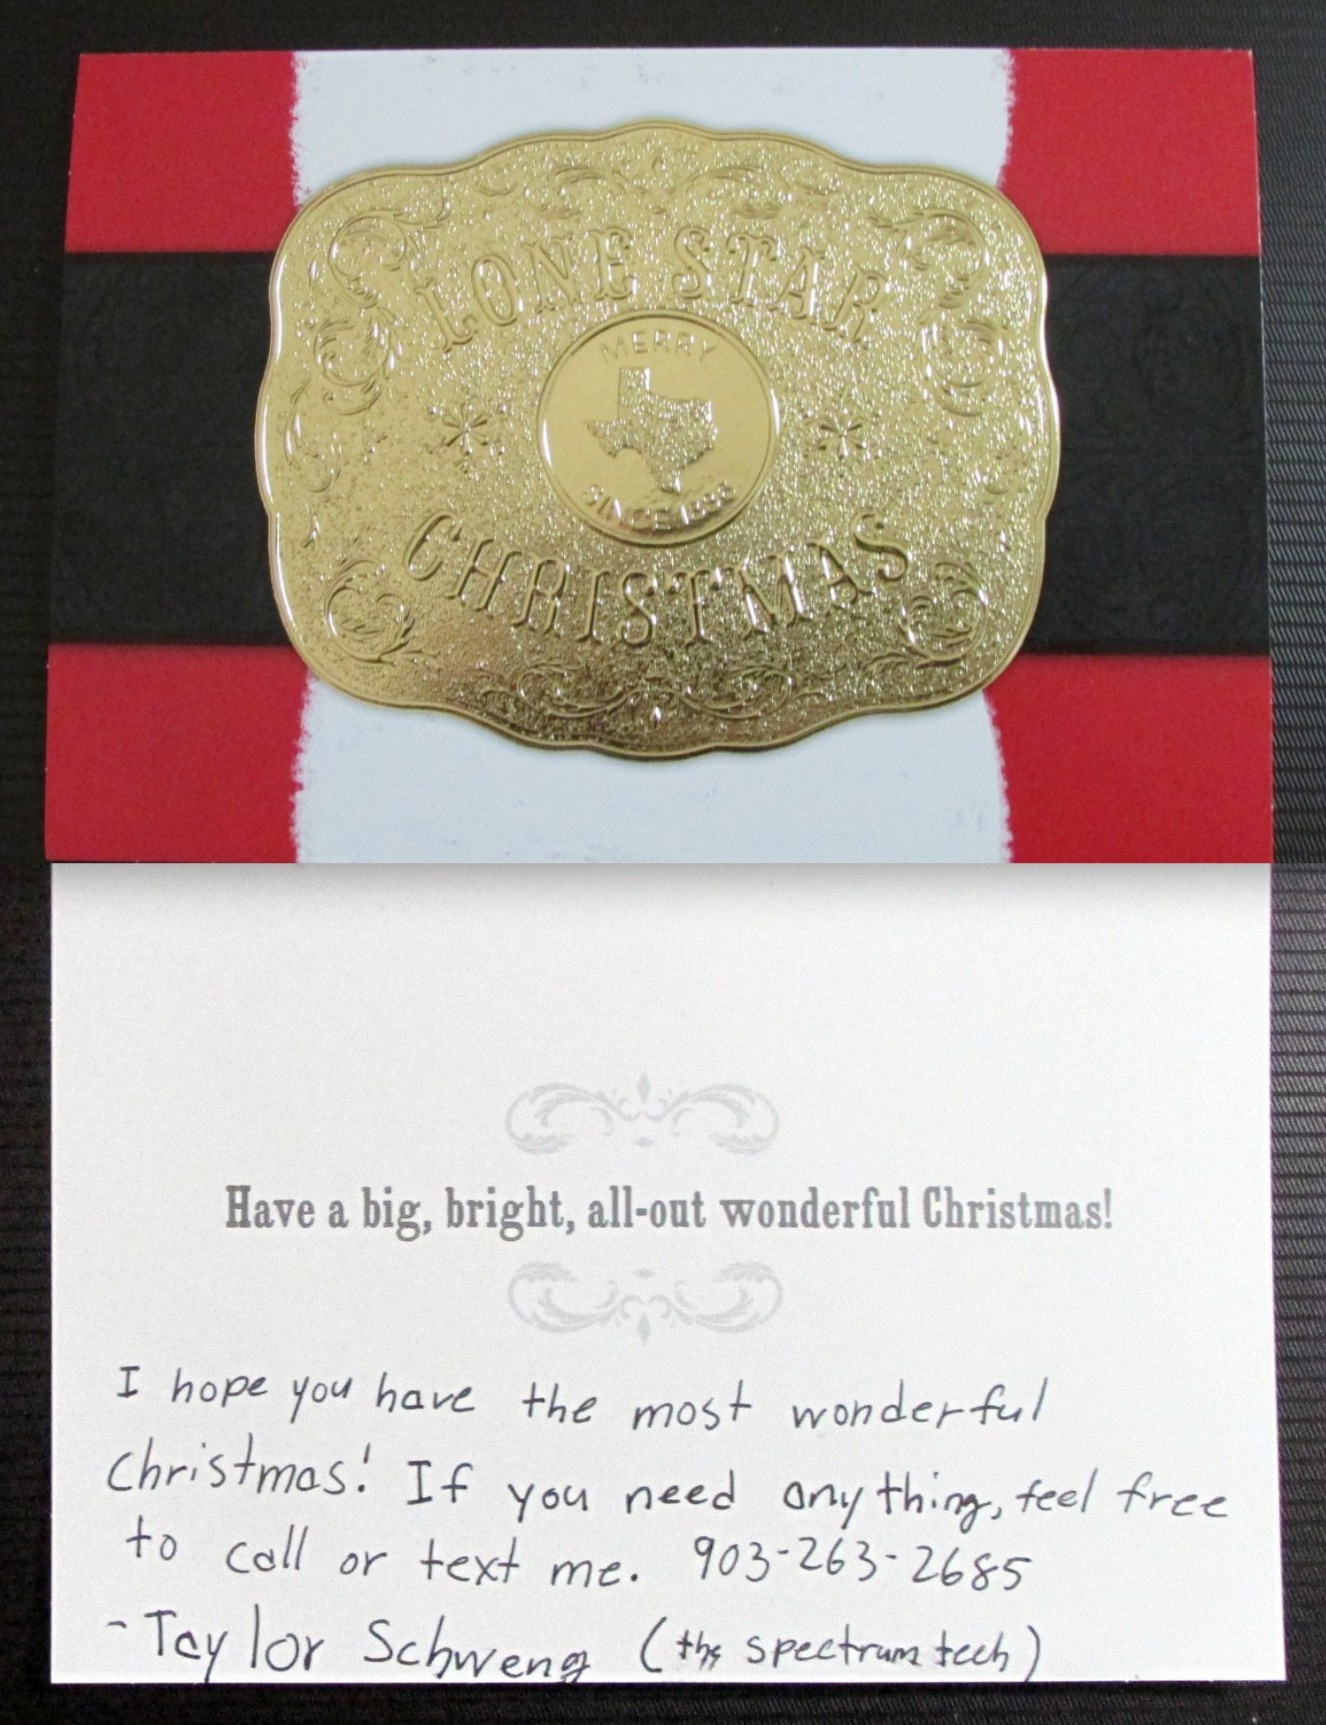 LONE STAR
MERRY
SINCE
CHRISTMAS
Have a big, bright, all-out wonderful Christmas!
I hope you have the most wonderful
Christmas! If you need anything, feel free
to call or text me. 903-263-2685
- Taylor Schweng (the spectrum tech)